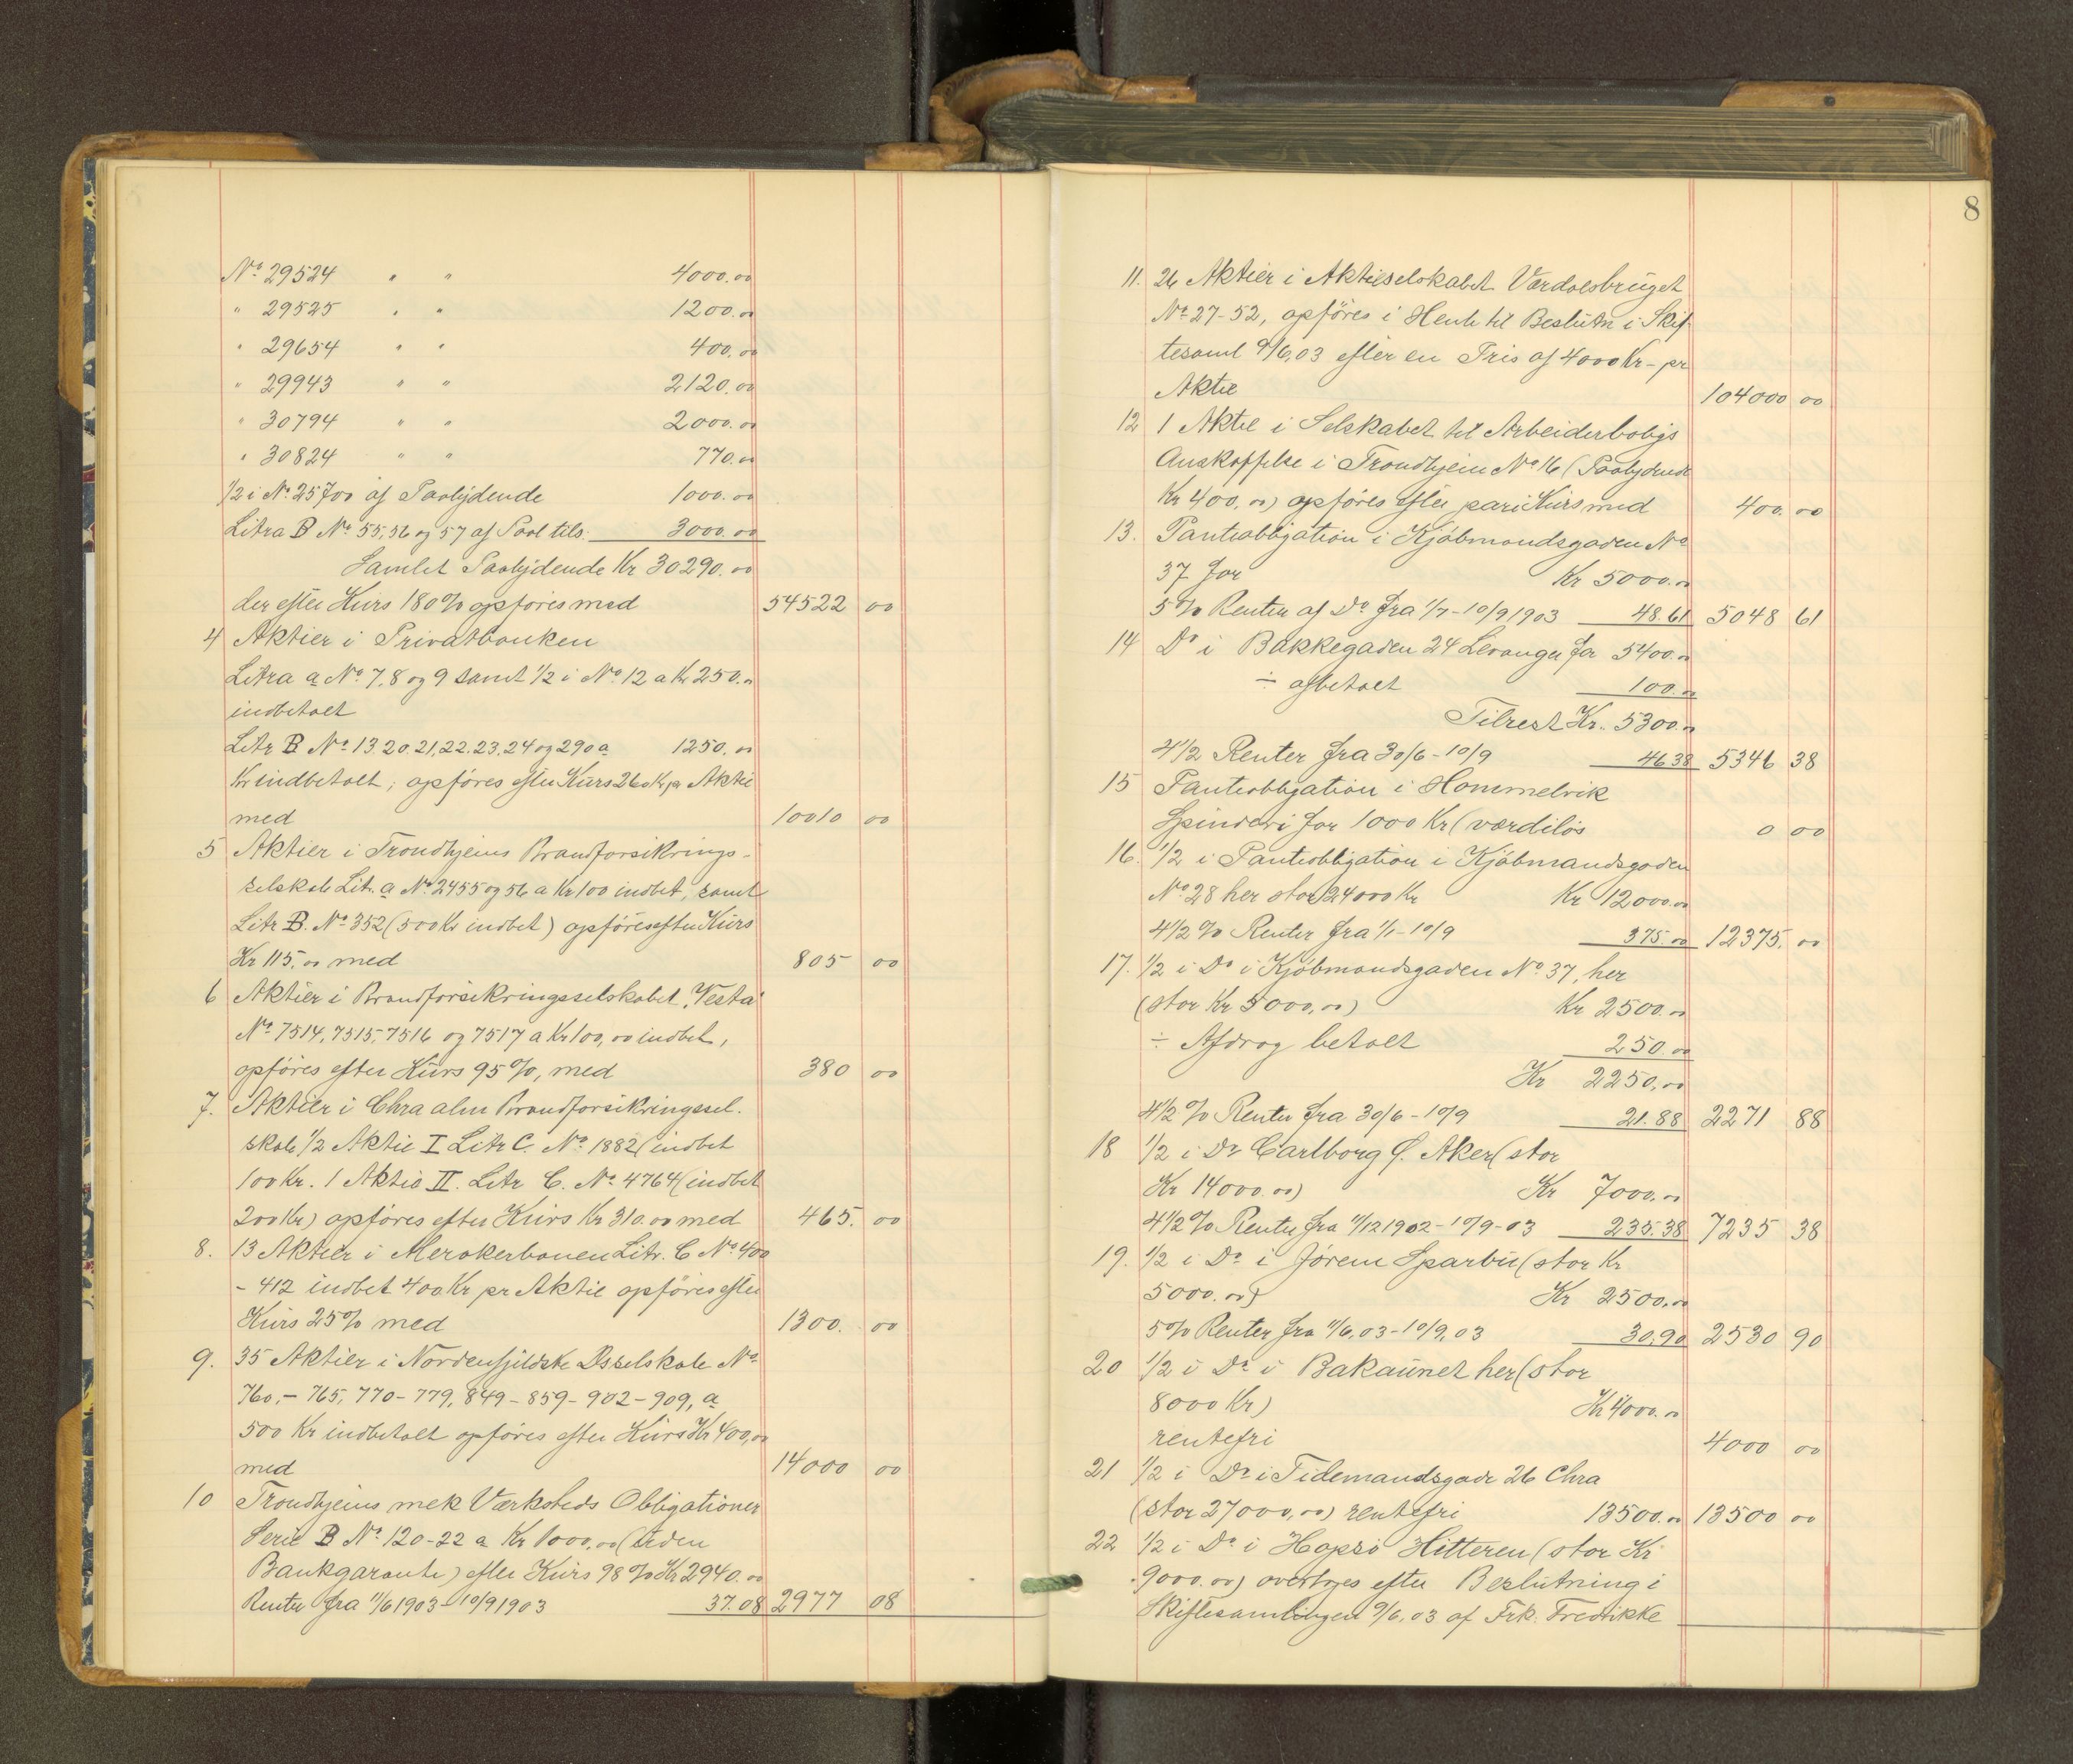 No 29524 " " 4000.00
" 29525 " " 1200.00
" 29654 " " 400.00
" 29943 " " 2120.00
" 30794 " " 2000.00
" 30824 " " 770.00
1/2 i No. 25700 af Paalydende 1000.00
Litra B No. 55,56 og 57 af Paal tils. 3000.00
Samlet Paalydende Kr 30290.00
der efter Kurs 180% opføres med 54522 00
4 Aktier i Privatbanken
Litra a No. 7,8 og 9 samt 1/2 i No. 12 a Kr 250.00
indbetalt
Litr B No. 13.20.21.22.23.24 og 290 a 1250.00
Kr indbetalt; opføres efter Kurs 260 Kr pr Aktie
med 10010 00
5 Aktier i Trondhjems Brandforsikrings-
selskab Lit. a No. 2455 og 56 a Kr 100 indbet, samt
Litr B. No. 352 (500 Kr indbet) opføres efter Kurs
Kr 115.00 med 805 00
6 Aktier i Brandforsikringsselskabet "Vesta"
No. 7514, 7515, 7516 og 7517 a Kr 100,00 indbet,
opføres efter Kurs 95%, med 380 00
7. Aktier i Chra alm Brandforsikringssel-
skab 1/2 Aktie I Litr C. No. 1882 (indbet
100 Kr. 1 Aktie II. Litr C. No. 4764 (indbet
200 Kr) opføres efter Kurs Kr 310.00 med 465. 00
8. 13 Aktier i Merakerbanen Litr. C No. 400
- 412 indbet 400 Kr pr Aktie opføres efter
Kurs 25% med 1300. 00
9. 35 Aktier i Nordenfjeldske Dsselskab No.
760,- 765, 770- 779, 849- 859- 902- 909, a
500 Kr indbetalt opføres efter Kurs Kr 400,00
med 14000 00
10 Trondhjems mek Værksteds Obligationer
Serie B No. 120-22 a Kr 1000,00 (uden
Bankgaranti) efter Kurs 98% Kr 2940.00
Renter fra 11/6 1903 - 10/9 1903 37.08 2977 08
8
11. 26 Aktier i Aktieselskabet Værdalsbruget
No. 27-52, opføres i Henh til Beslutn i Skif-
tesaml 9/6,03 efter en Pris af 4000 Kr- pr
Aktie 104000 00
12 1 Aktie i Selskabet til Arbeiderboligs
Anskaffelse i Trondhjem No. 16 (Paalydende
Kr 400,00) opføres efter pari Kurs med 400. 00
13. Panteobligation i Kjøbmandsgaden No
37 for Kr 5000.00
5% Renter af Do fra 1/7-10/9 1903 48.61 5048 61
14 Do i Bakkegaden 24 Levanger for 5400.00
÷ afbetalt 100.00
Tilrest Kr. 5300.00
4 1/2 Renter fra 30/6 - 10/9 46.38 5346 38
15 Panteobligation i Hommelvik
Spinderi for 1000 Kr (værdiløs 0 00
16. 1/2 i Panteobligation i Kjøbmandsgaden
No 28 her stor 24000 Kr Kr 12000.00
4 1/2 % Renter fra 1/1 - 10/9 375.00 12375. 00
17. 1/2 i Do i Kjøbmandsgaden No. 37, her
(stor Kr 5000,00) Kr 2500.00
÷ Afdrag betalt 250.00
Kr 2250,00
4 1/2 % Renter fra 30/6 - 10/9 21.88 2271 88
18 1/2 i Do Carlborg Ø. Aker (stor
Kr 14000.00) Kr 7000.00
4 1/2 % Renter fra 11/12 1902 - 10/9-03 235.38 7235 38
19. 1/2 i Do i Jørem Sparbu (stor Kr
5000.00) Kr 2500.00
5% Renter fra 11/6,03 - 10/9,03 30,90 2530 90
20 1/2 i Do i Bakaunet her (stor
8000 Kr) Kr 4000.00
rentefri 4000 00
21 1/2 i Do i Tidemandsgade 26 Chra
(stor 27000,00) rentefri 13500.00 13500 00
22 1/2 i Do i Hopsö Hitteren (stor Kr
9000.00) overtages efter Beslutning i
Skiftesamlingen 9/6,03 af Frk. Fredrikke